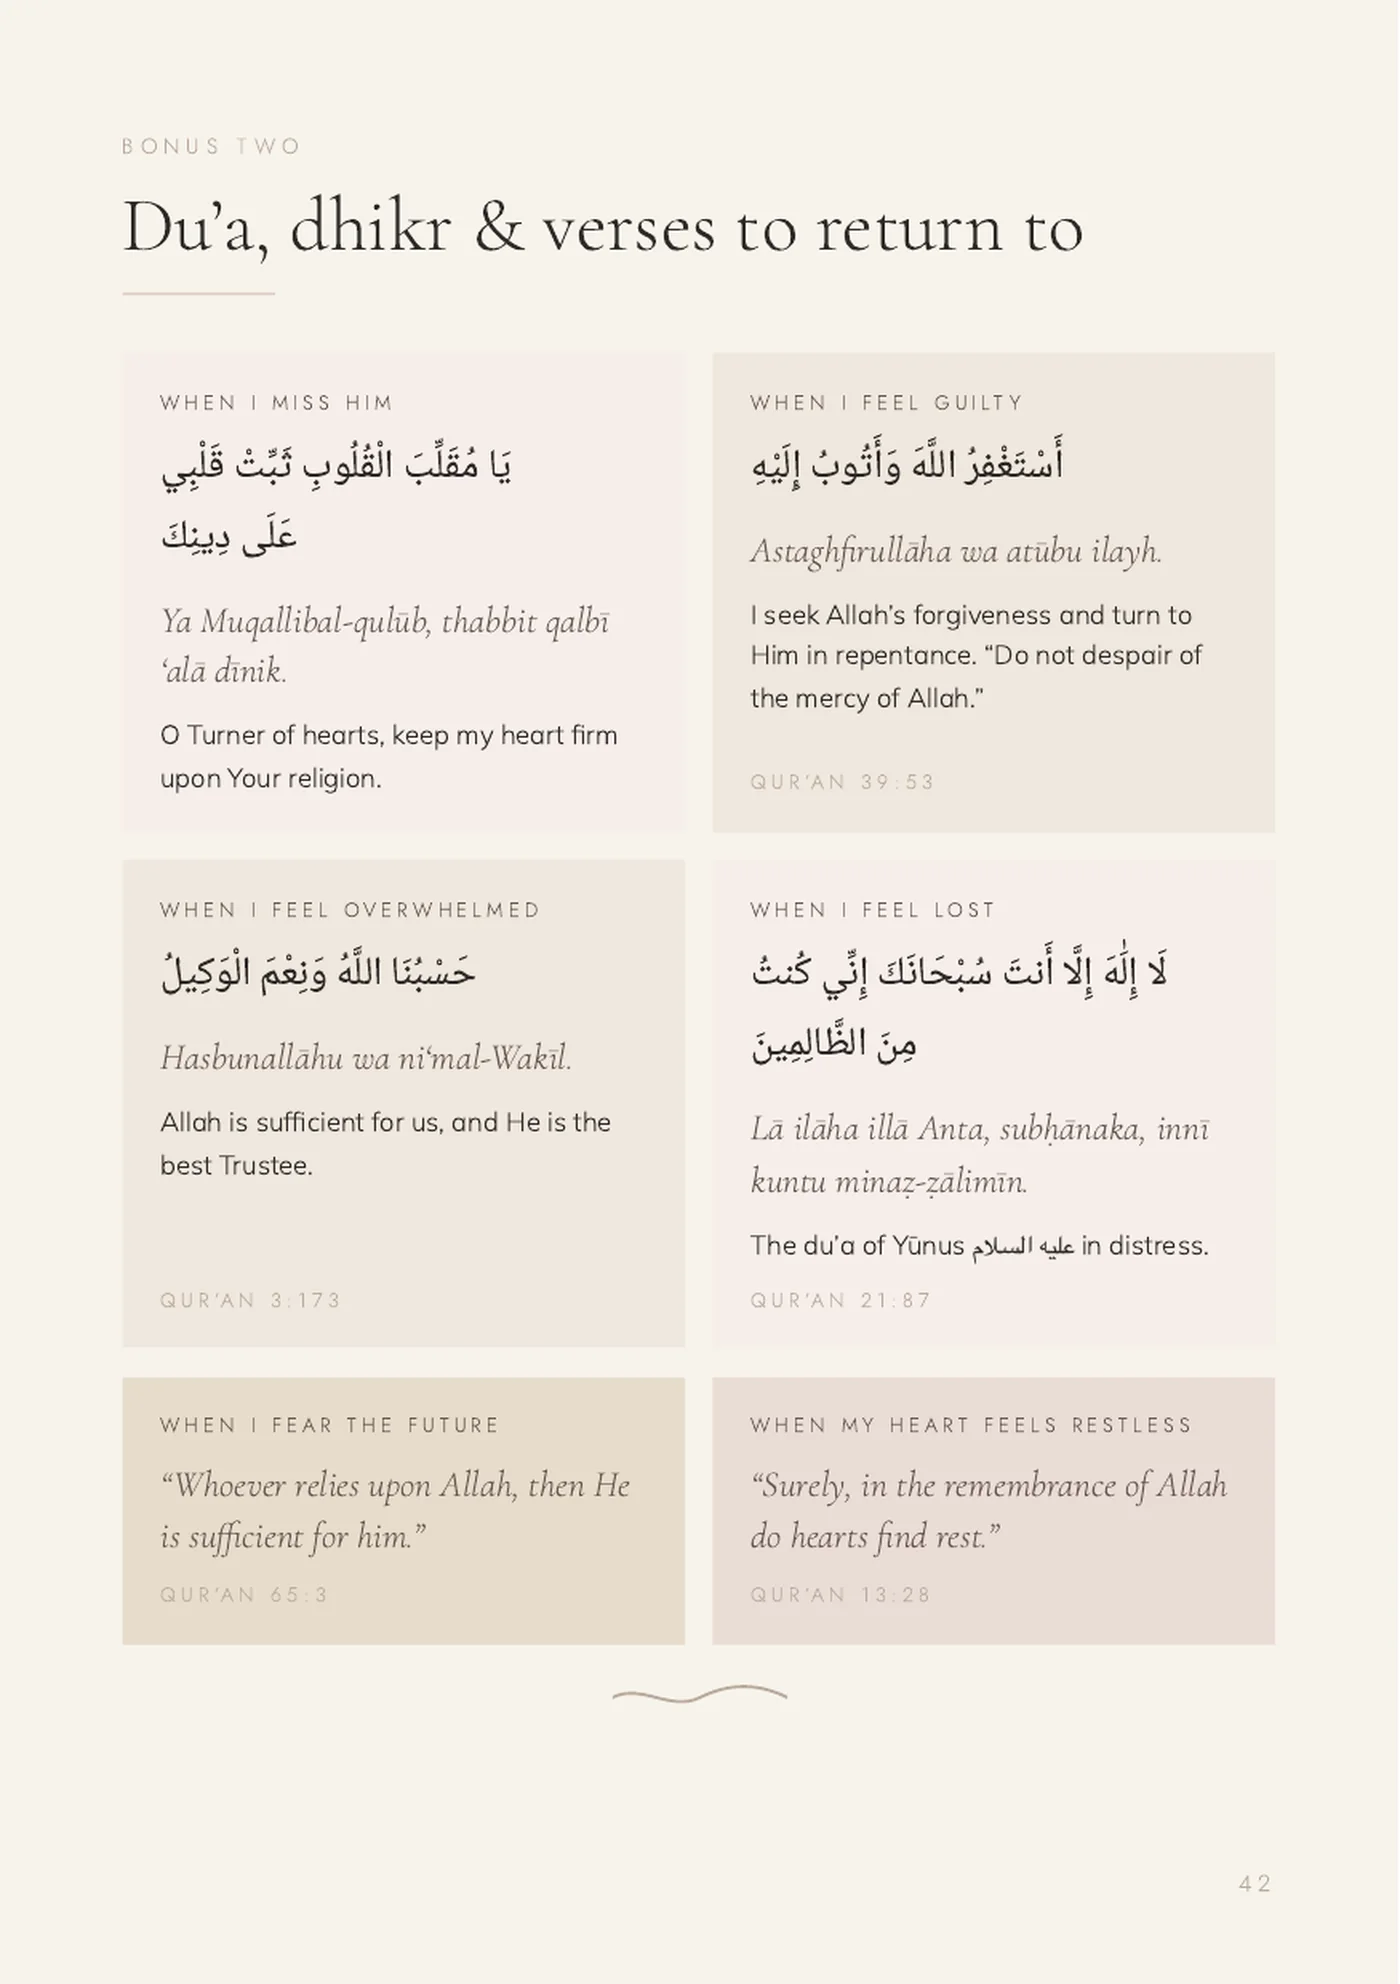 BONUS TWO
Du’a, dhikr & verses to return to
WHEN I MISS HIM
يَا مُقَلِّبَ الْقُلُوبِ ثَبِّتْ قَلْبِي
عَلَى دِينِكَ
Ya Muqallibal-qulūb, thabbit qalbī
‘alā dīnik.
O Turner of hearts, keep my heart firm
upon Your religion.
WHEN I FEEL GUILTY
أَسْتَغْفِرُ اللَّهَ وَأَتُوبُ إِلَيْهِ
Astaghfirullāha wa atūbu ilayh.
I seek Allah’s forgiveness and turn to
Him in repentance. “Do not despair of
the mercy of Allah.”
QUR’AN 39:53
WHEN I FEEL OVERWHELMED
حَسْبُنَا اللَّهُ وَنِعْمَ الْوَكِيلُ
Hasbunallāhu wa ni‘mal-Wakīl.
Allah is sufficient for us, and He is the
best Trustee.
QUR’AN 3:173
WHEN I FEEL LOST
لَا إِلَٰهَ إِلَّا أَنتَ سُبْحَانَكَ إِنِّي كُنتُ
مِنَ الظَّالِمِينَ
Lā ilāha illā Anta, subḥānaka, innī
kuntu minaẓ-ẓālimīn.
The du’a of Yūnus عليه السلام in distress.
QUR’AN 21:87
WHEN I FEAR THE FUTURE
“Whoever relies upon Allah, then He
is sufficient for him.”
QUR’AN 65:3
WHEN MY HEART FEELS RESTLESS
“Surely, in the remembrance of Allah
do hearts find rest.”
QUR’AN 13:28
42